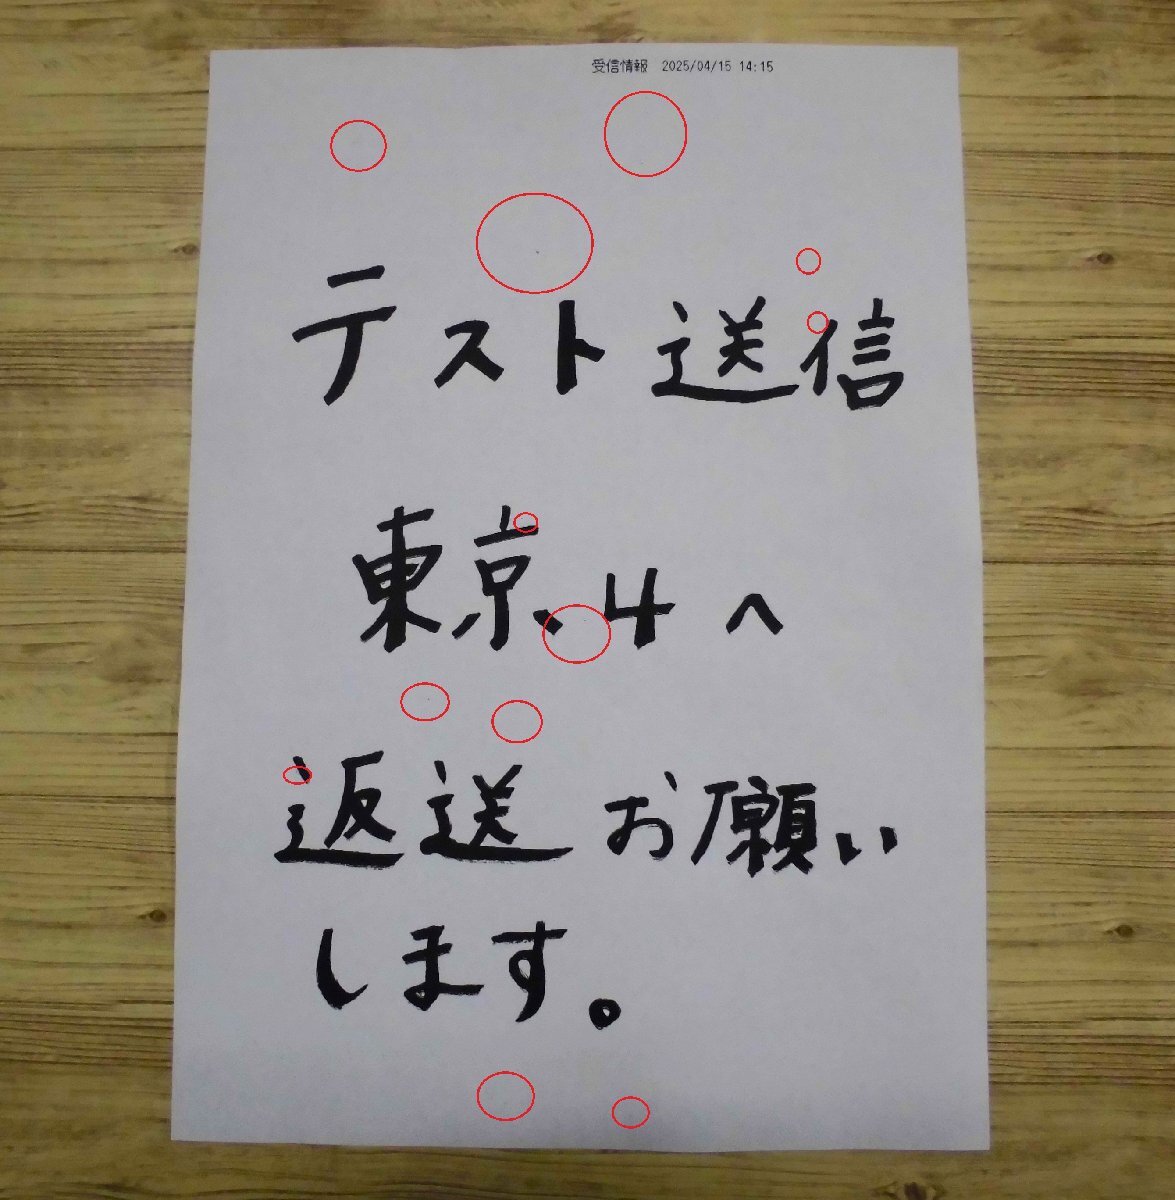 受信情報 2025/04/15 14:15
テスト送信
東京、4へ
返送お願い
します。